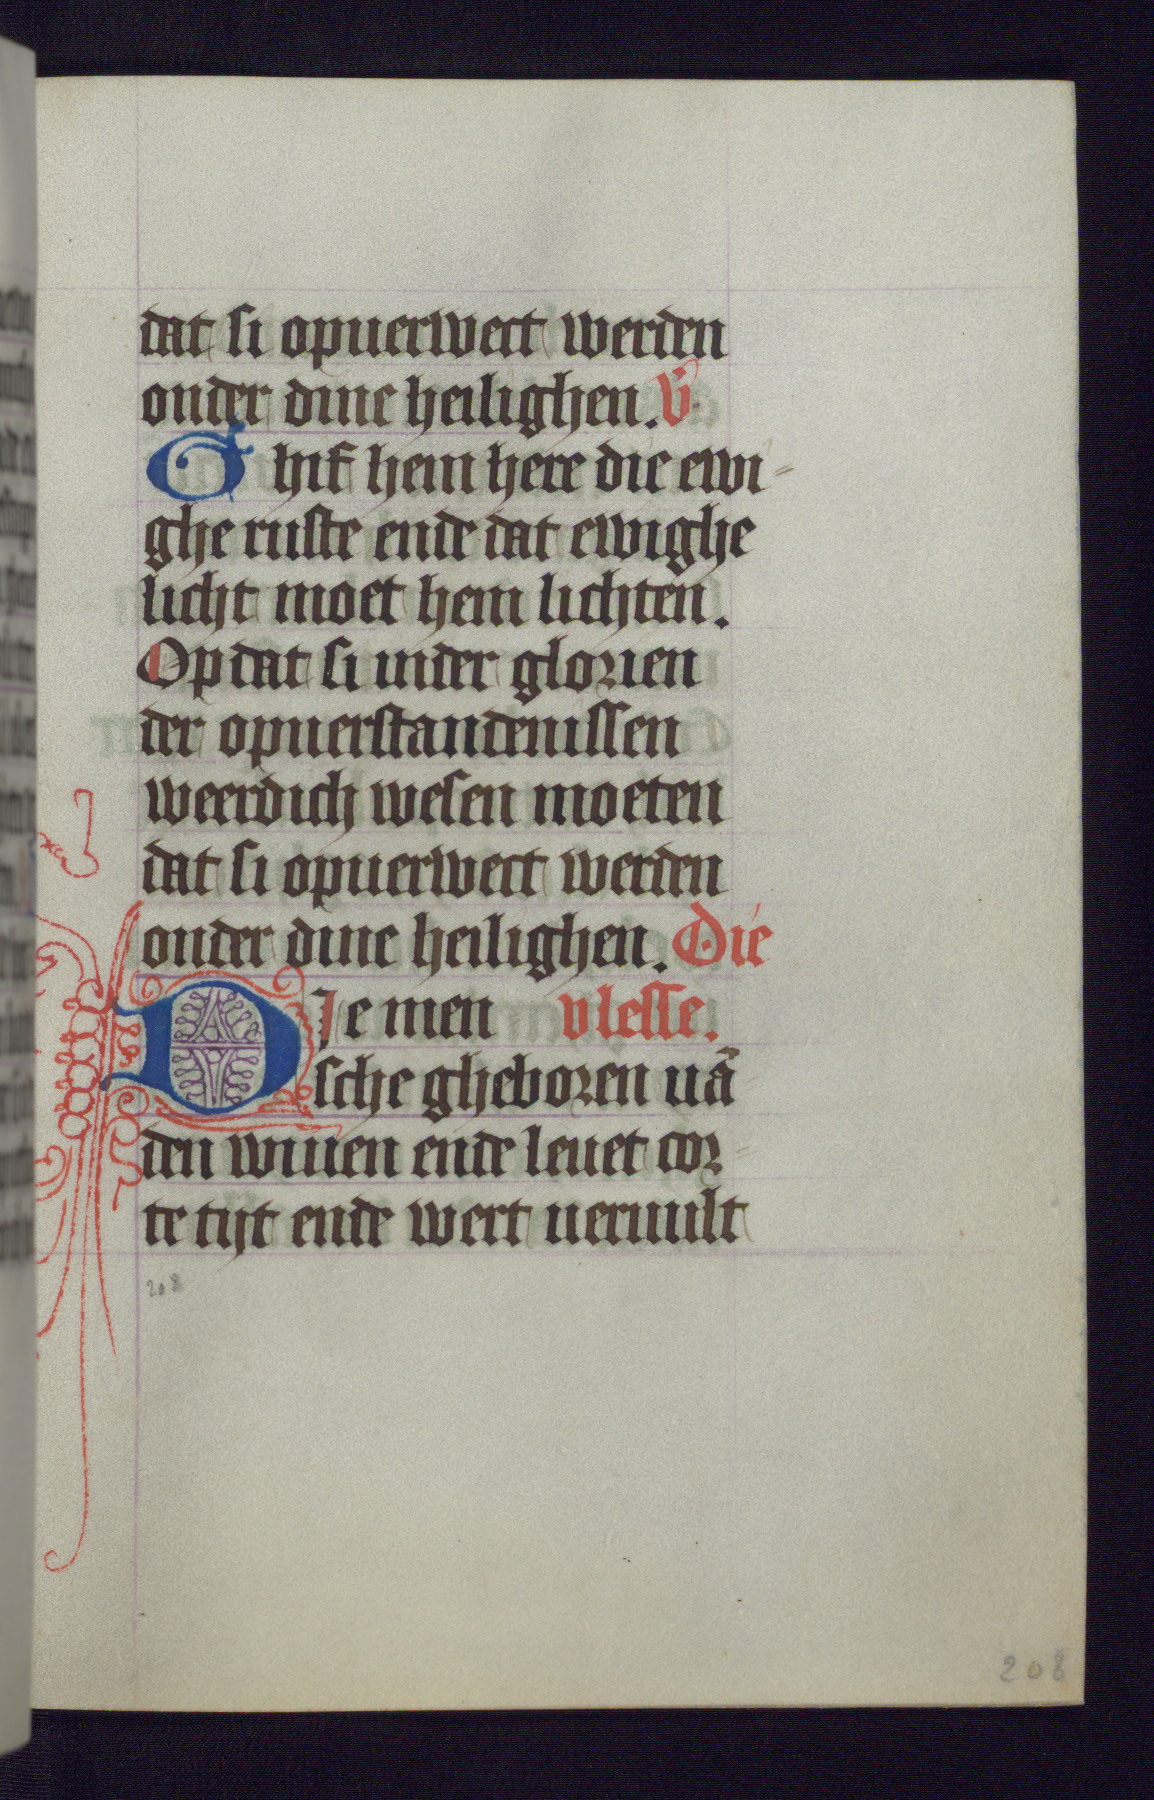 dat si opuerwect werden
onder dine heilighen. V̄
Ghif hem here die ewi-
ghe ruste ende dat ewighe
licht moet hem lichten.
Op dat si inder glorien
der opuerstandenissen
weerdich wesen moeten
dat si opuerwect werden
onder dine heilighen. Die
DIe men vlesse.
sche gheboren uā
den wiuen ende leuet cor
te tijt ende wert ueruult
208
208